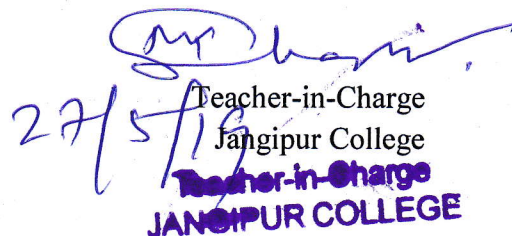 27/5/19
Teacher-in-Charge
Jangipur College
Teacher-in-Charge
JANGIPUR COLLEGE